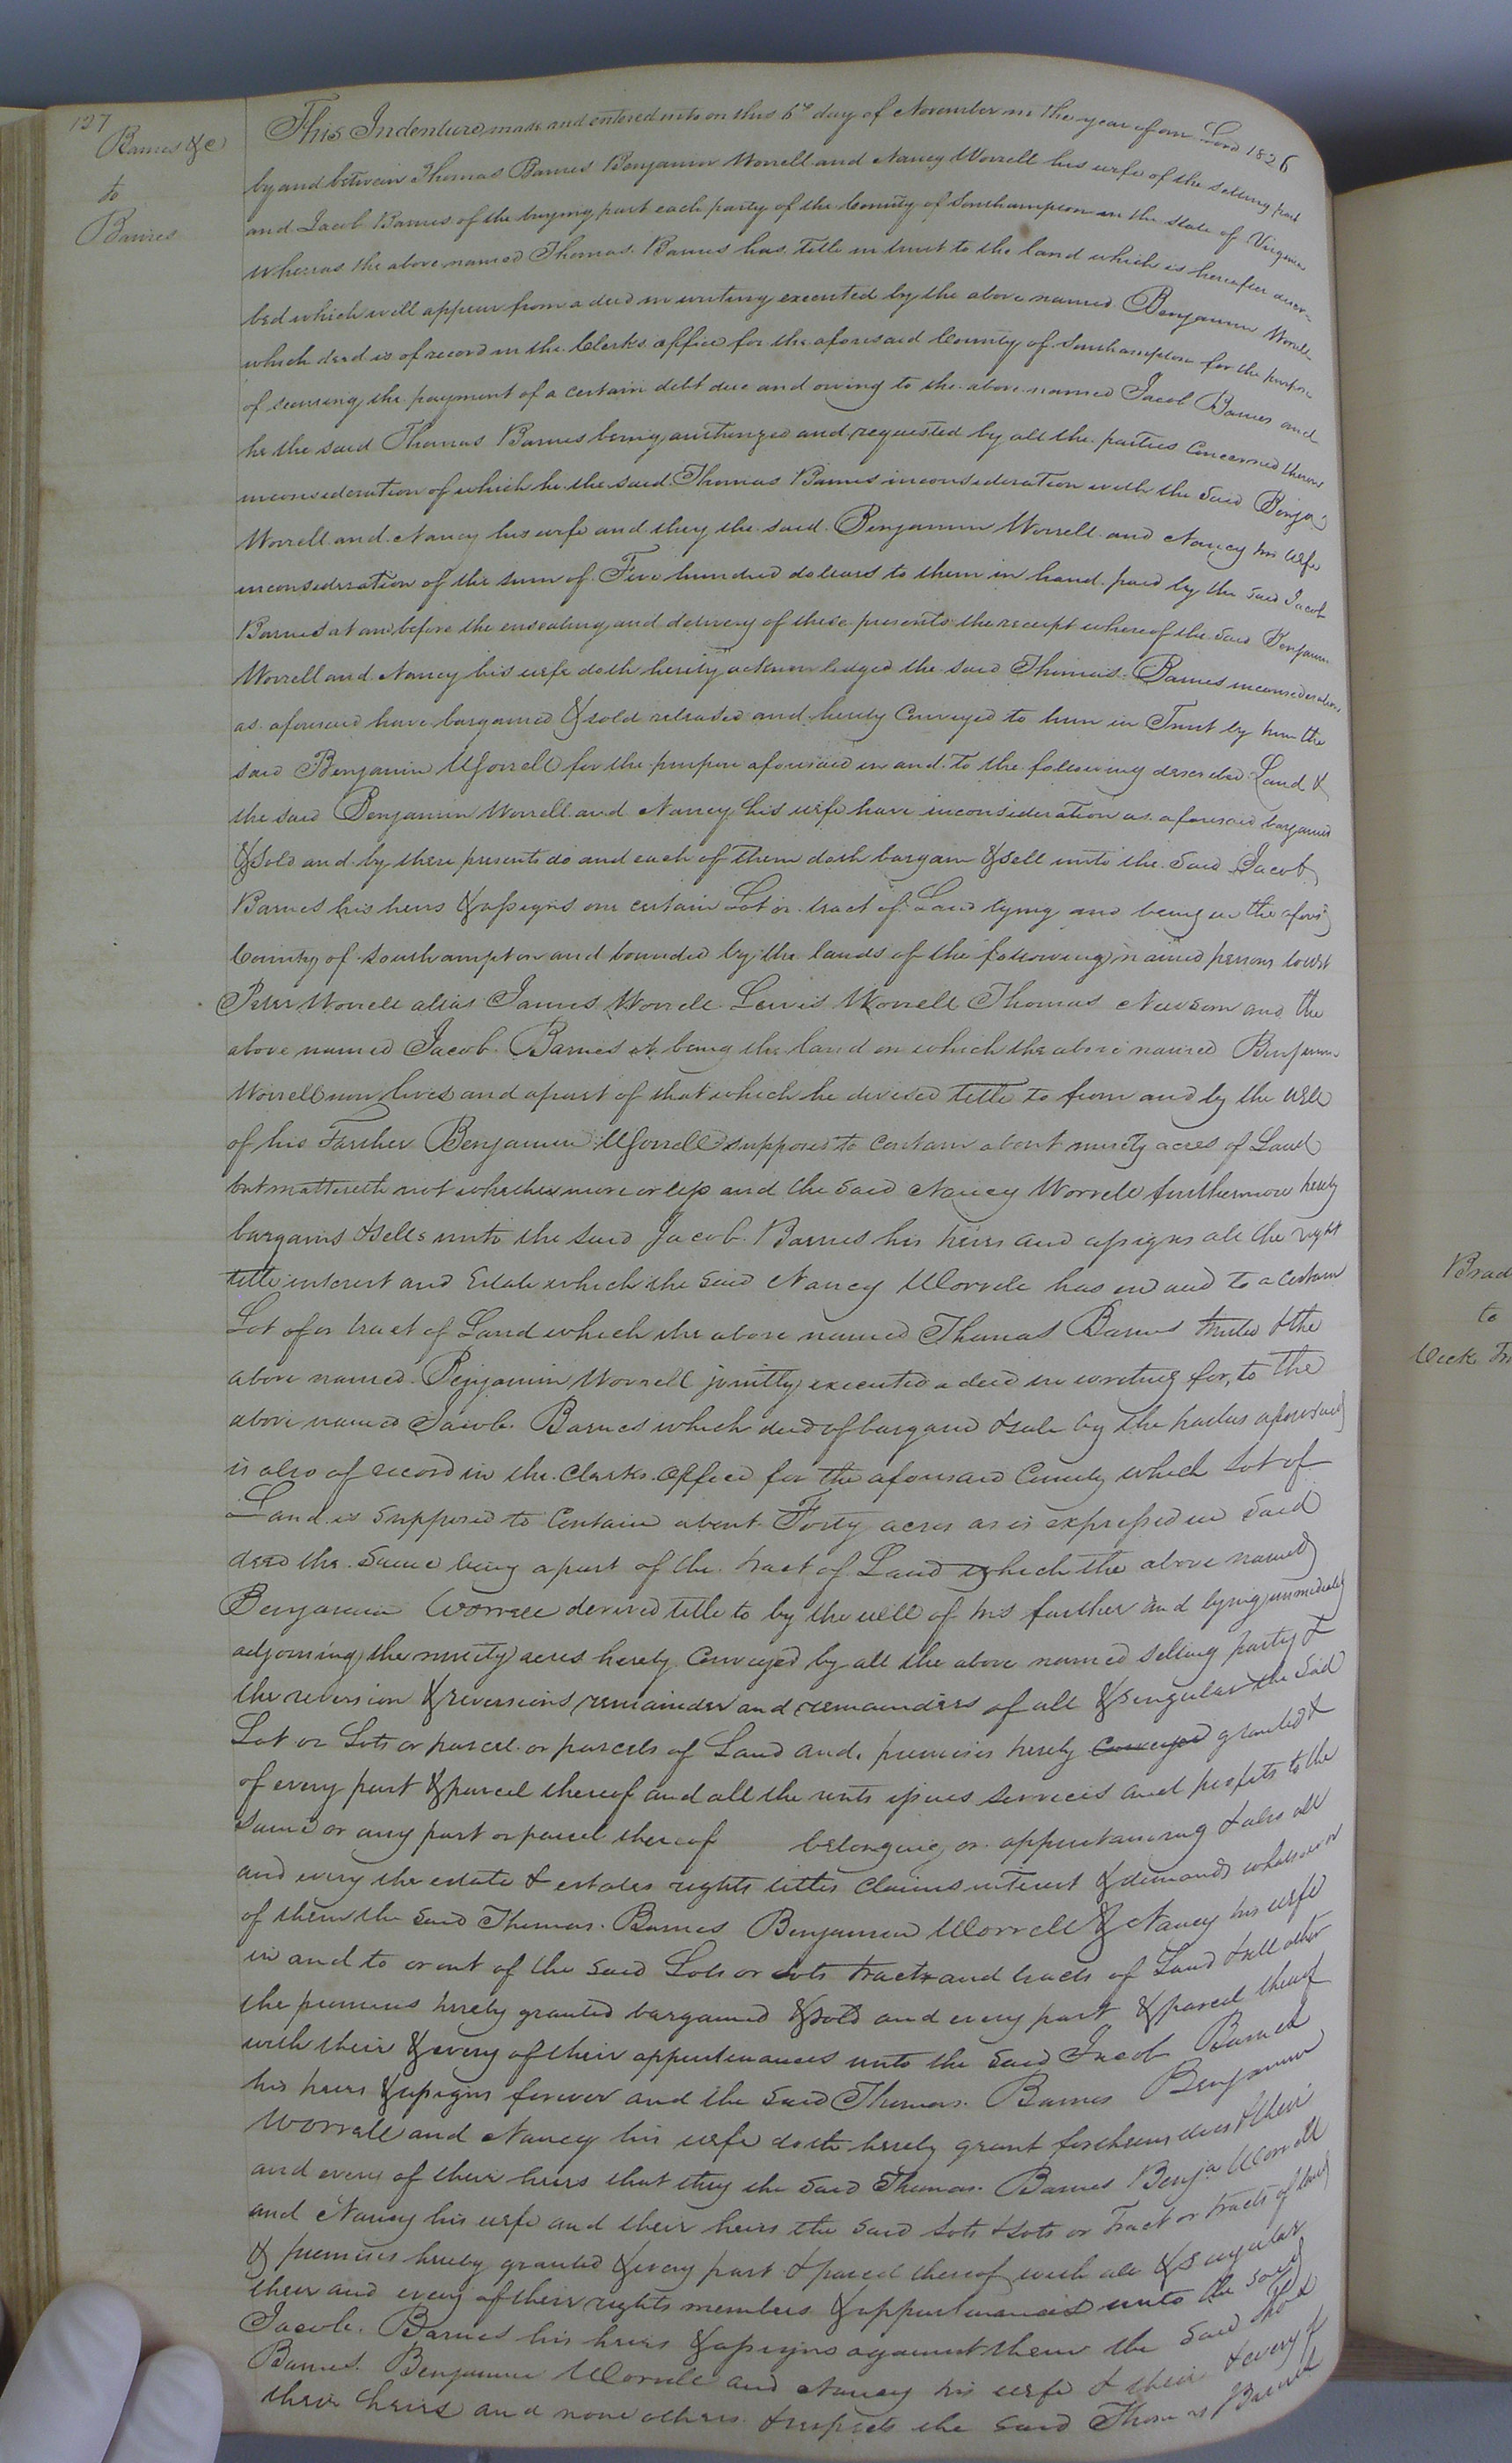 127
Barnes &c
to
Barnes
This Indenture, made and entered into on this 6th day of November in the year of our Lord 1826
by and between Thomas Barnes Benjamin Worrell and Nancy Worrell his wife of the selling part
and Jacob Barnes of the buying part each party of the County of Southampton in the State of Virginia
whereas the above named Thomas Barnes has title in trust to the land which is hereafter descri-
bed which will appear from a deed in writing executed by the above named Benjamin Worrell
which deed is of record in the Clerks office for the aforesaid County of Southampton for the purpose
of securing the payment of a certain debt due and owing to the above named Jacob Barnes and
he the said Thomas Barnes being authorized and requested by all the parties Concerned therein
inconsideration of which he the said Thomas Barnes inconsideration with the Said Benja
Worrell and Nancy his wife and they the said Benjamin Worrell and Nancy his wife
inconsideration of the sum of Five hundred dollars to them in hand paid by the said Jacob
Barnes at and before the ensealing and delivery of these presents the receipt whereof the said Benjamin
Worrell and Nancy his wife doth hereby acknowledged the said Thomas Barnes inconsideration
as aforesaid have bargained & sold released and hereby Conveyed to him in Trust by him the
said Benjamin Worrell for the purpose aforesaid in and to the following described Land &
the said Benjamin Worrell and Nancy his wife have inconsideration as aforesaid bargained
& Sold and by these presents do and each of them doth bargain & sell unto the Said Jacob
Barnes his heirs & assigns one certain Lot or tract of Land lying and being in the afores
County of Southampton and bounded by the lands of the following named persons towit
Peter Worrell alias James Worrell Lewis Worrell Thomas Newsom and the
above named Jacob Barnes it being the land on which the above named Benjamin
Worrell now lives and apart of that which he devised title to from and by the will
of his Farther Benjamin Worrell supposed to Contain about ninety acres of Land
but mattereth not whether more or less and the Said Nancy Worrell furthermore hereby
bargains & sells unto the said Jacob Barnes his heirs and assigns all the right
title interest and Estate which the Said Nancy Worrell has in and to a certain
Lot of or tract of Land which the above named Thomas Barnes & the
above named Benjamin Worrell jointly executed a deed in writing for, to the
above named Jacob Barnes which deed of bargain & sale by the parties aforesaid
is also of record in the Clerks office for the aforesaid County which Lot of
Land is Supposed to Contain about Forty acres as is expressed in Said
deed the Same being apart of the tract of Land which the above named
Benjamin Worrell derived title to by the will of his farther and lying immediately
adjoining the ninety acres hereby Conveyed by all the above named selling party &
the reversion & reversions remainder and remainders of all & singular the Said
Lot or Lots or parcel or parcels of Land and premises hereby conveyed granted &
of every part & parcel thereof and all the rents issues services and profits to the
Same or any part or parcel thereof belonging or appurtaining & also all
and every the estate & estates rights titles Claims interest & demands whatsoever
of them the Said Thomas Barnes Benjamin Worrell & Nancy his wife
in and to or out of the Said Lots or Lots tract and tracts of Land & all other
the premises hereby granted bargained & sold and every part & parcel thereof
with their & every of their appurtenances unto the Said Jacob Barnes
his heirs & assigns forever and the Said Thomas Barnes Benjamin
Worrell and Nancy his wife doth hereby grant for themselves & their
and every of their heirs that they the Said Thomas Barnes Benja Worrell
and Nancy his wife and their heirs the Said Lots & Lots or Tract or tracts of land
& premises hereby granted & every part & parcel thereof with all & singular
their and every of their rights members & appurtenances unto the Said
Jacob Barnes his heirs & assigns against them the Said Thos
Barnes Benjamin Worrell and Nancy his wife & their & every of
their heirs and none others the Said Thomas Barnes
Brad
to